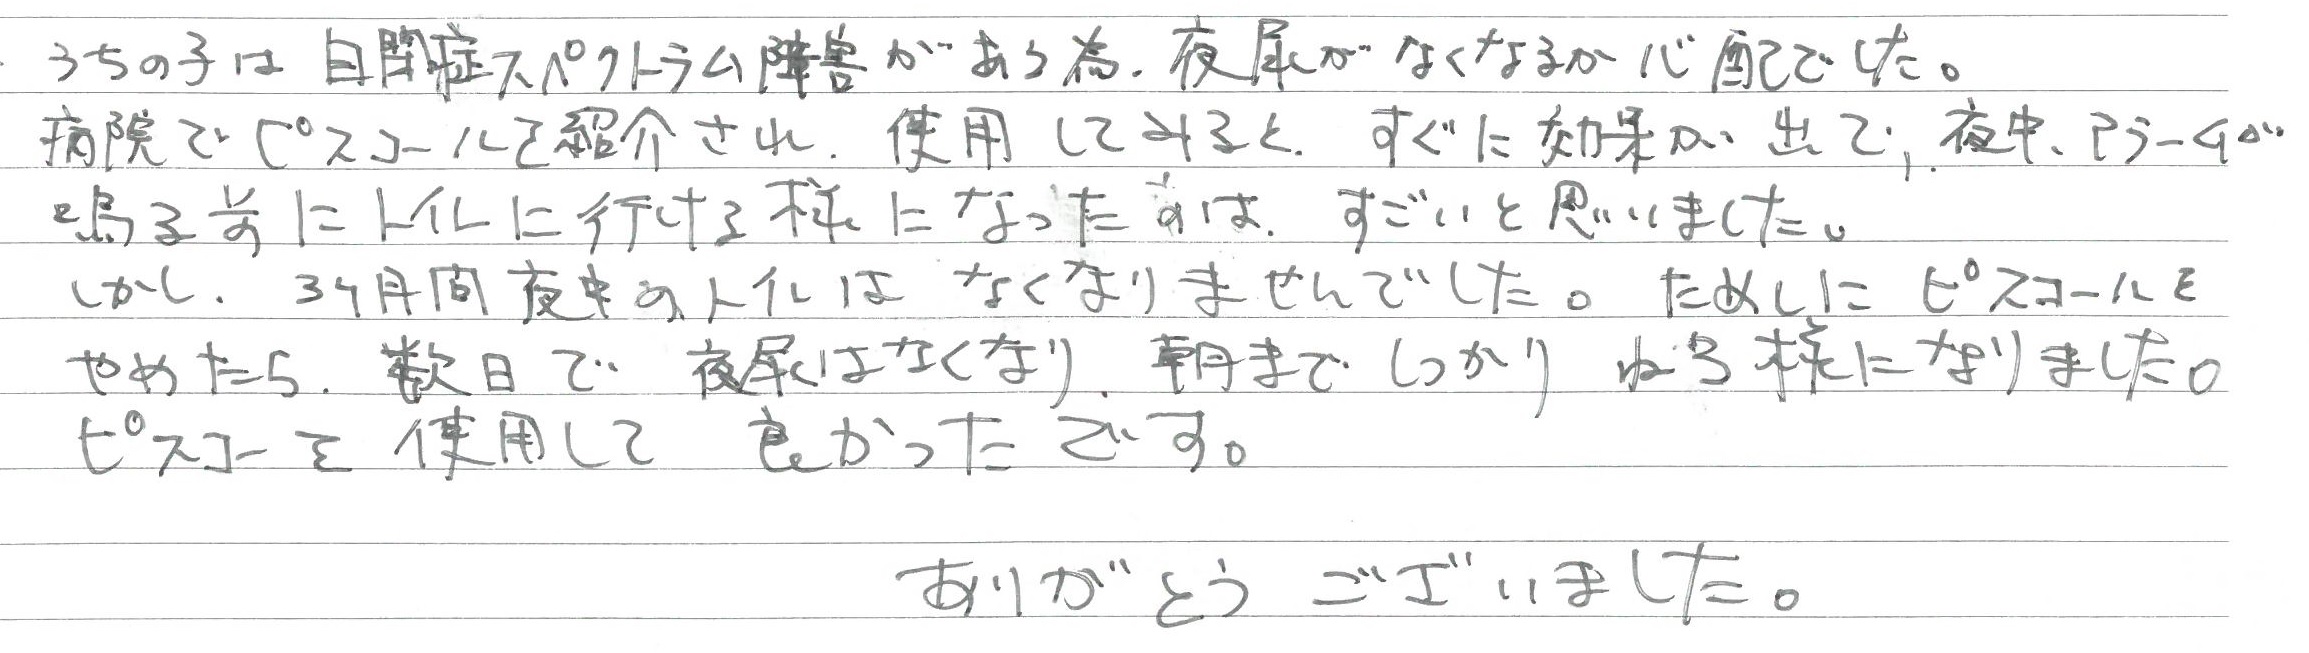 うちの子は自閉症スペクトラム障害がある為、夜尿がなくなるか心配でした。
病院でピスコールを紹介され、使用してみると、すぐに効果が出て、夜中、アラームが
鳴る前にトイレに行ける様になったのは、すごいと思いました。
しかし、3ヶ月間夜中のトイレはなくなりませんでした。ためしにピスコールを
やめたら、数日で夜尿はなくなり、朝までしっかりねる様になりました。
ピスコーを使用して良かったです。
ありがとうございました。